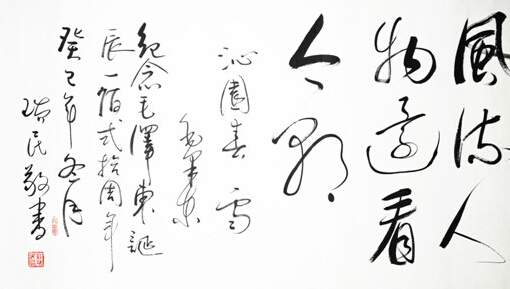 風流人
物還看
今朝
沁園春雪
毛澤東
紀念毛澤東誕
辰一佰弍拾周年
癸巳年冬月
瑞民敬書